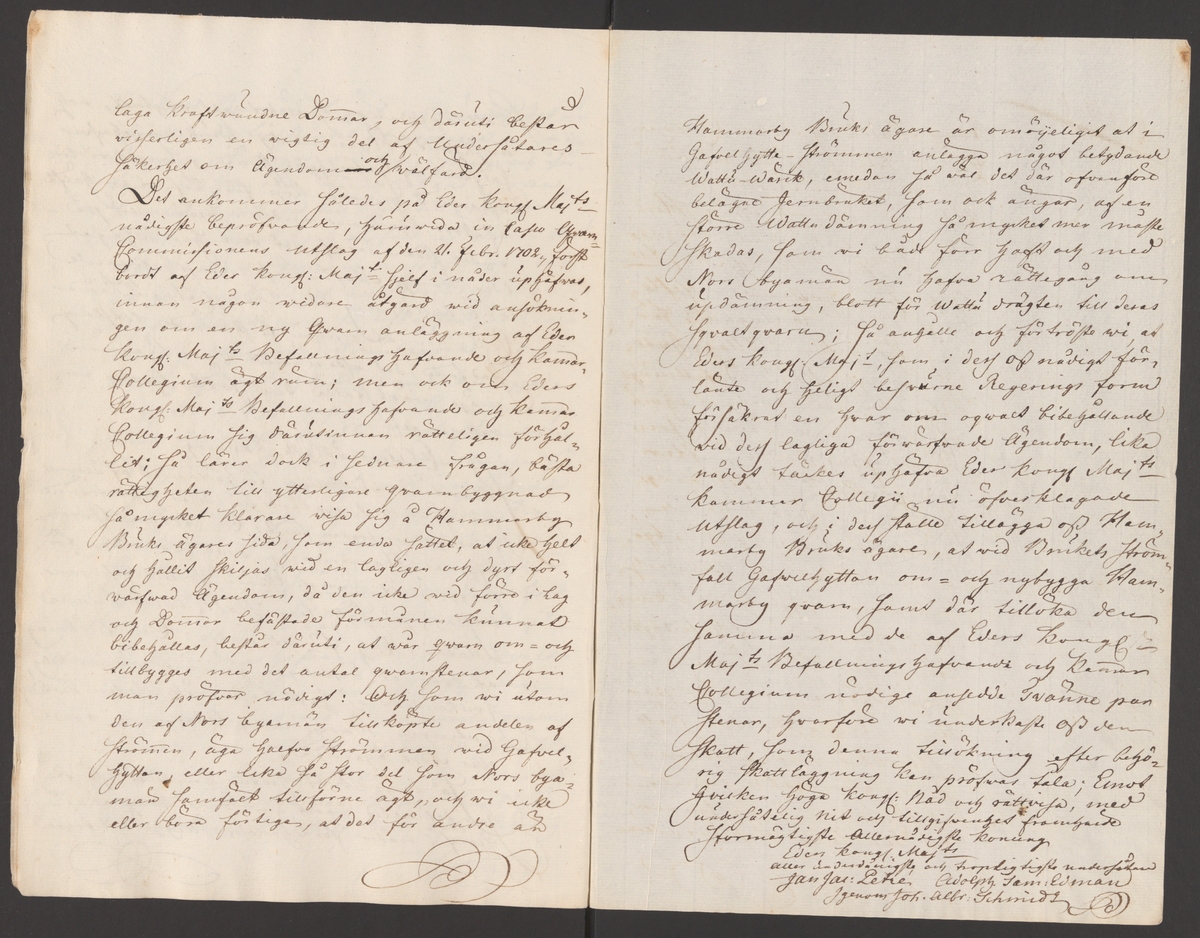 laga kraftwundne Domar, och däruti bestär
wisserligen en wigtig del af Undersåtares
Säkerhet om Ägendom och wälfärd.
Det ankommer således på Eder Kongl Maj:ts
nådigste bepröfwande, huruwida in Casu Qvarn-
Commissionens Utslag af den 21. Febr. 1702, först
bordt af Eder Kongl: Maj:t sjelf i nåder uphäfvas,
innan någon widare åtgärd wid ansöknin-
gen om en ny Qwarn anläggning af Eder
Kongl. Maj:ts Befallningshafwande och Kamar
Collegium ägt rum; men ock om Eders
Kongl: Maj:ts Befallningshafwande och Kammar
Collegium sig därutinnan rätteligen förhål-
lit; så lärer dock i sednare frågan, bästa
rättigheten till ytterligare qwarnbyggnad
så mycket klarare wisa sig å Hammarby
Bruks ägares sida, som enda sättet, at icke helt
och hållit skiljas wid en lagligen och dyrt för-
wärfwad Ägendom, då den icke vid förra i lag
och Domar befästade förmånen kunnat
bibehållas, består däruti, at wår qwarn om- och
tillbygges med det antal qwarnstenar, som
man pröfvar nödigt: Och som wi utom
den af Nors byamän tillköpte andelen af
Strömen, äga halfva Strömmen vid Gafvel-
hyttan, eller lika så stor del som Nors bya-
män samfält tillförne ägt, och wi icke
eller böra förtiga, at det för andre än
Hammarby Bruks ägare är omöjeligit at i
Gafvelhytte-Strömmen anlägga något betydande
Wattu-Wärk, emedan så wäl det där ofvanföre
belägne Jernbruket, som ock ängar, af en
större Wattudämning så mycket mer måste
skadas, som wi både förr haft och med
Nors byamän nu hafva rättegång om
updämning, blott för Wattudrägten till deras
Sqvaltqvarn; så anhålle och förtröste wi, at
Eders Kongl. Maj:t, som i dess oss nådigt för-
länte och heligt beswurne Regerings form
försäkrat en hvar om oqwalt bibehållande
vid dess lagliga förwärfwade Ägendom, lika
nådigt täckes uphäfva Eder Kongl Maj:ts
Kammar Collegii nu öfverklagade
Utslag, och i dess ställe tillägga oss Ham-
marby Bruks ägare, at wid Brukets Ström-
fall Gafvelhyttan om- och nybygga Ham-
marby qvarn, samt där tillöka den
samma med de af Eders Kongl
Maj:ts Befallningshafvande och Kamar
Collegium nödige ansedde Tvänne par
Stenar, hvarföre wi underkaste oss den
Skatt, som denna tillökning efter behö-
rig skattläggning kan pröfwas tåla; Emot
hvilken höga Kongl: Nåd och rättvisa, med
undersåtelig nit och tillgifvenhet framhärde
Stormägtigste Allernådigste Konung
Eders Kongl Maj:ts
aller underdånigste och tropligtigste undersåtare
Jan Jac: Petre Adolph Sam: Edman
Igenom Joh. Albr: Schmidt